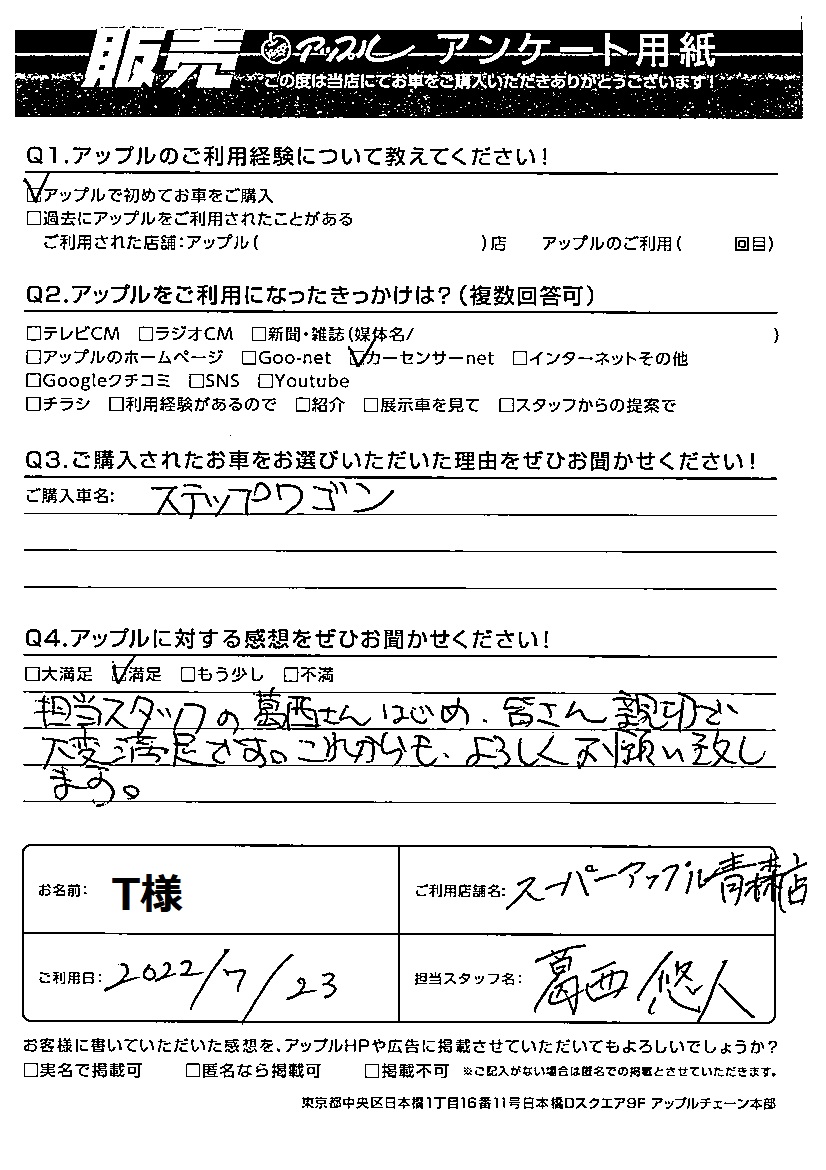 販売 アップル アンケート用紙
この度は当店にてお車をご購入いただきありがとうございます!
Q1.アップルのご利用経験について教えてください!
☑アップルで初めてお車をご購入
□過去にアップルをご利用されたことがある
ご利用された店舗:アップル( )店 アップルのご利用( 回目)
Q2.アップルをご利用になったきっかけは?(複数回答可)
□テレビCM □ラジオCM □新聞・雑誌(媒体名/ )
□アップルのホームページ □Goo-net ☑カーセンサーnet □インターネットその他
□Googleクチコミ □SNS □Youtube
□チラシ □利用経験があるので □紹介 □展示車を見て □スタッフからの提案で
Q3.ご購入されたお車をお選びいただいた理由をぜひお聞かせください!
ご購入車名: ステップワゴン
Q4.アップルに対する感想をぜひお聞かせください!
□大満足 ☑満足 □もう少し □不満
担当スタッフの葛西さんはじめ、皆さん親切で
大変満足です。これからも、よろしくお願い致し
ます。
お名前: T様 ご利用店舗名: スーパーアップル青森店
ご利用日: 2022/7/23 担当スタッフ名: 葛西 悠人
お客様に書いていただいた感想を、アップルHPや広告に掲載させていただいてもよろしいでしょうか?
□実名で掲載可 □匿名なら掲載可 □掲載不可 ※ご記入がない場合は匿名での掲載とさせていただきます。
東京都中央区日本橋1丁目16番11号日本橋Dスクエア9F アップルチェーン本部